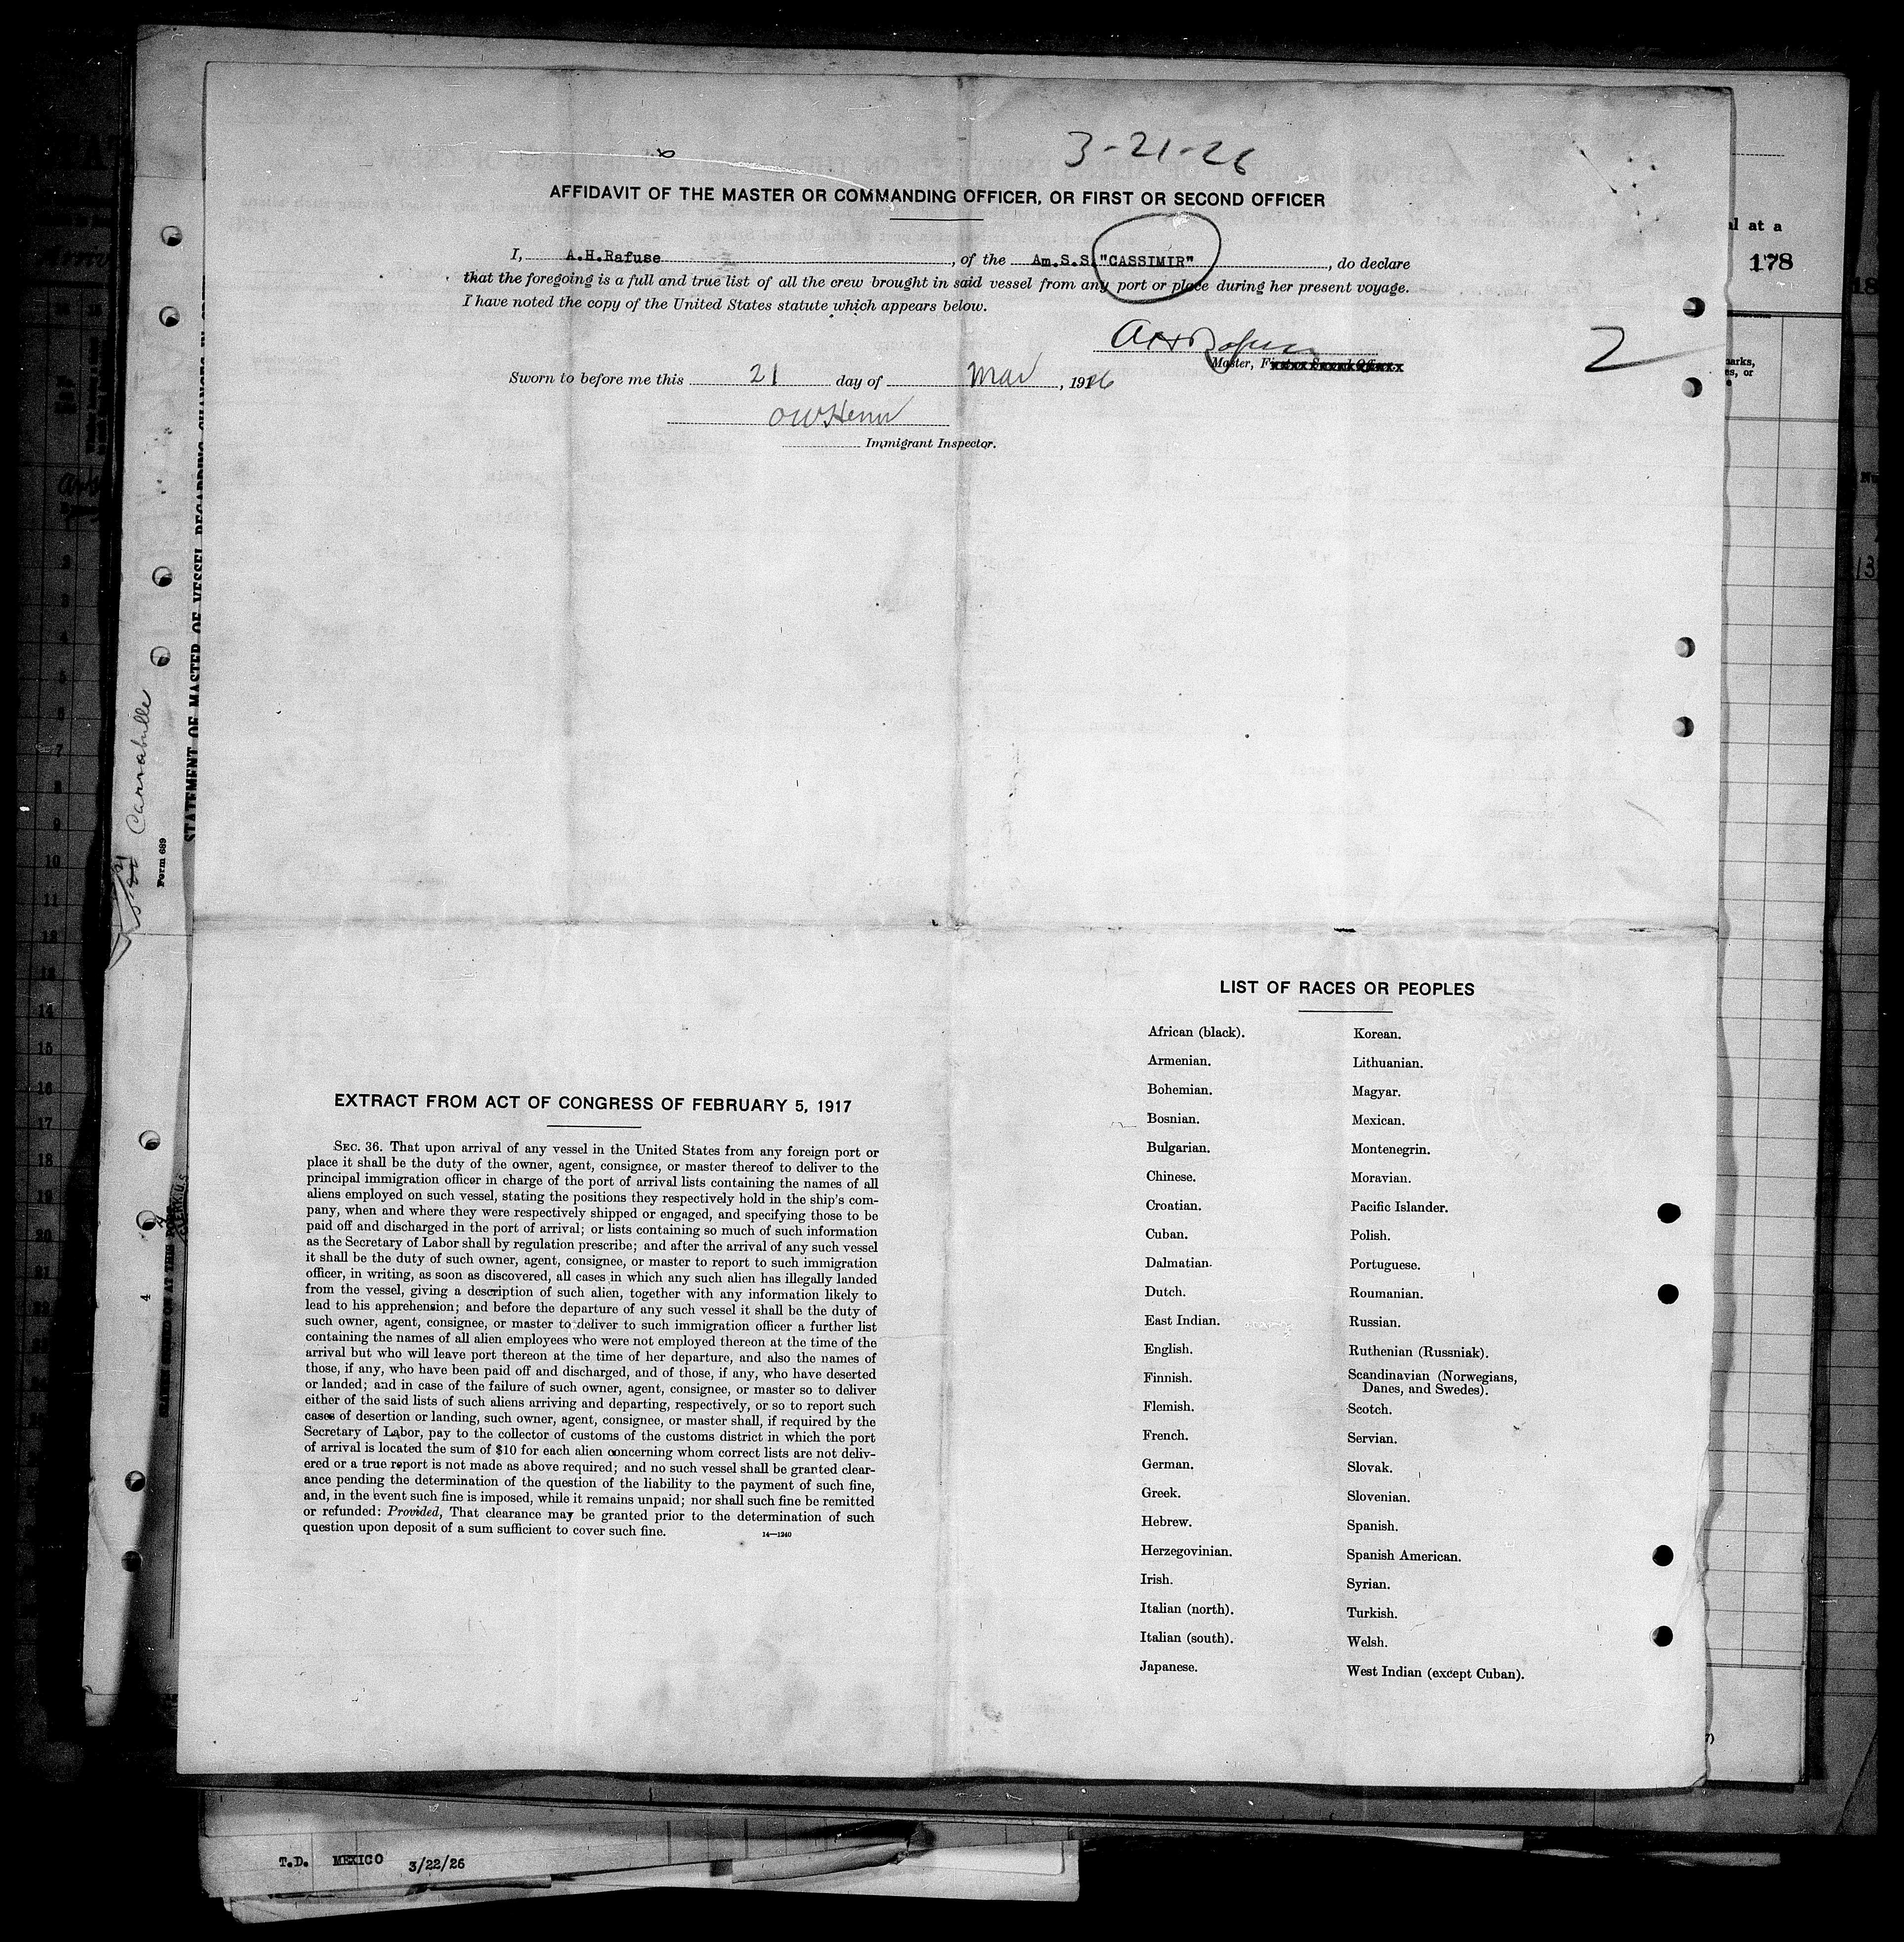 3-21-26
AFFIDAVIT OF THE MASTER OR COMMANDING OFFICER, OR FIRST OR SECOND OFFICER
I, A.H.Rafuse, of the Am.S.S."CASSIMIR", do declare
that the foregoing is a full and true list of all the crew brought in said vessel from any port or place during her present voyage.
I have noted the copy of the United States statute which appears below.
Master, First or Second Officer.
2
Sworn to before me this 21 day of Mar, 1926
Immigrant Inspector.
al at a
178
STATEMENT OF MASTER OF VESSEL REGARDING CHANGES IN CREW
Form 689
EXTRACT FROM ACT OF CONGRESS OF FEBRUARY 5, 1917
SEC. 36. That upon arrival of any vessel in the United States from any foreign port or
place it shall be the duty of the owner, agent, consignee, or master thereof to deliver to the
principal immigration officer in charge of the port of arrival lists containing the names of all
aliens employed on such vessel, stating the positions they respectively hold in the ship's com-
pany, when and where they were respectively shipped or engaged, and specifying those to be
paid off and discharged in the port of arrival; or lists containing so much of such information
as the Secretary of Labor shall by regulation prescribe; and after the arrival of any such vessel
it shall be the duty of such owner, agent, consignee, or master to report to such immigration
officer, in writing, as soon as discovered, all cases in which any such alien has illegally landed
from the vessel, giving a description of such alien, together with any information likely to
lead to his apprehension; and before the departure of any such vessel it shall be the duty of
such owner, agent, consignee, or master to deliver to such immigration officer a further list
containing the names of all alien employees who were not employed thereon at the time of the
arrival but who will leave port thereon at the time of her departure, and also the names of
those, if any, who have been paid off and discharged, and of those, if any, who have deserted
or landed; and in case of the failure of such owner, agent, consignee, or master so to deliver
either of the said lists of such aliens arriving and departing, respectively, or so to report such
cases of desertion or landing, such owner, agent, consignee, or master shall, if required by the
Secretary of Labor, pay to the collector of customs of the customs district in which the port
of arrival is located the sum of $10 for each alien concerning whom correct lists are not deliv-
ered or a true report is not made as above required; and no such vessel shall be granted clear-
ance pending the determination of the question of the liability to the payment of such fine,
and, in the event such fine is imposed, while it remains unpaid; nor shall such fine be remitted
or refunded: Provided, That clearance may be granted prior to the determination of such
question upon deposit of a sum sufficient to cover such fine.
14—1240
LIST OF RACES OR PEOPLES
African (black).
Armenian.
Bohemian.
Bosnian.
Bulgarian.
Chinese.
Croatian.
Cuban.
Dalmatian.
Dutch.
East Indian.
English.
Finnish.
Flemish.
French.
German.
Greek.
Hebrew.
Herzegovinian.
Irish.
Italian (north).
Italian (south).
Japanese.
Korean.
Lithuanian.
Magyar.
Mexican.
Montenegrin.
Moravian.
Pacific Islander.
Polish.
Portuguese.
Roumanian.
Russian.
Ruthenian (Russniak).
Scandinavian (Norwegians,
Danes, and Swedes).
Scotch.
Servian.
Slovak.
Slovenian.
Spanish.
Spanish American.
Syrian.
Turkish.
Welsh.
West Indian (except Cuban).
T.D. MEXICO 3/22/26